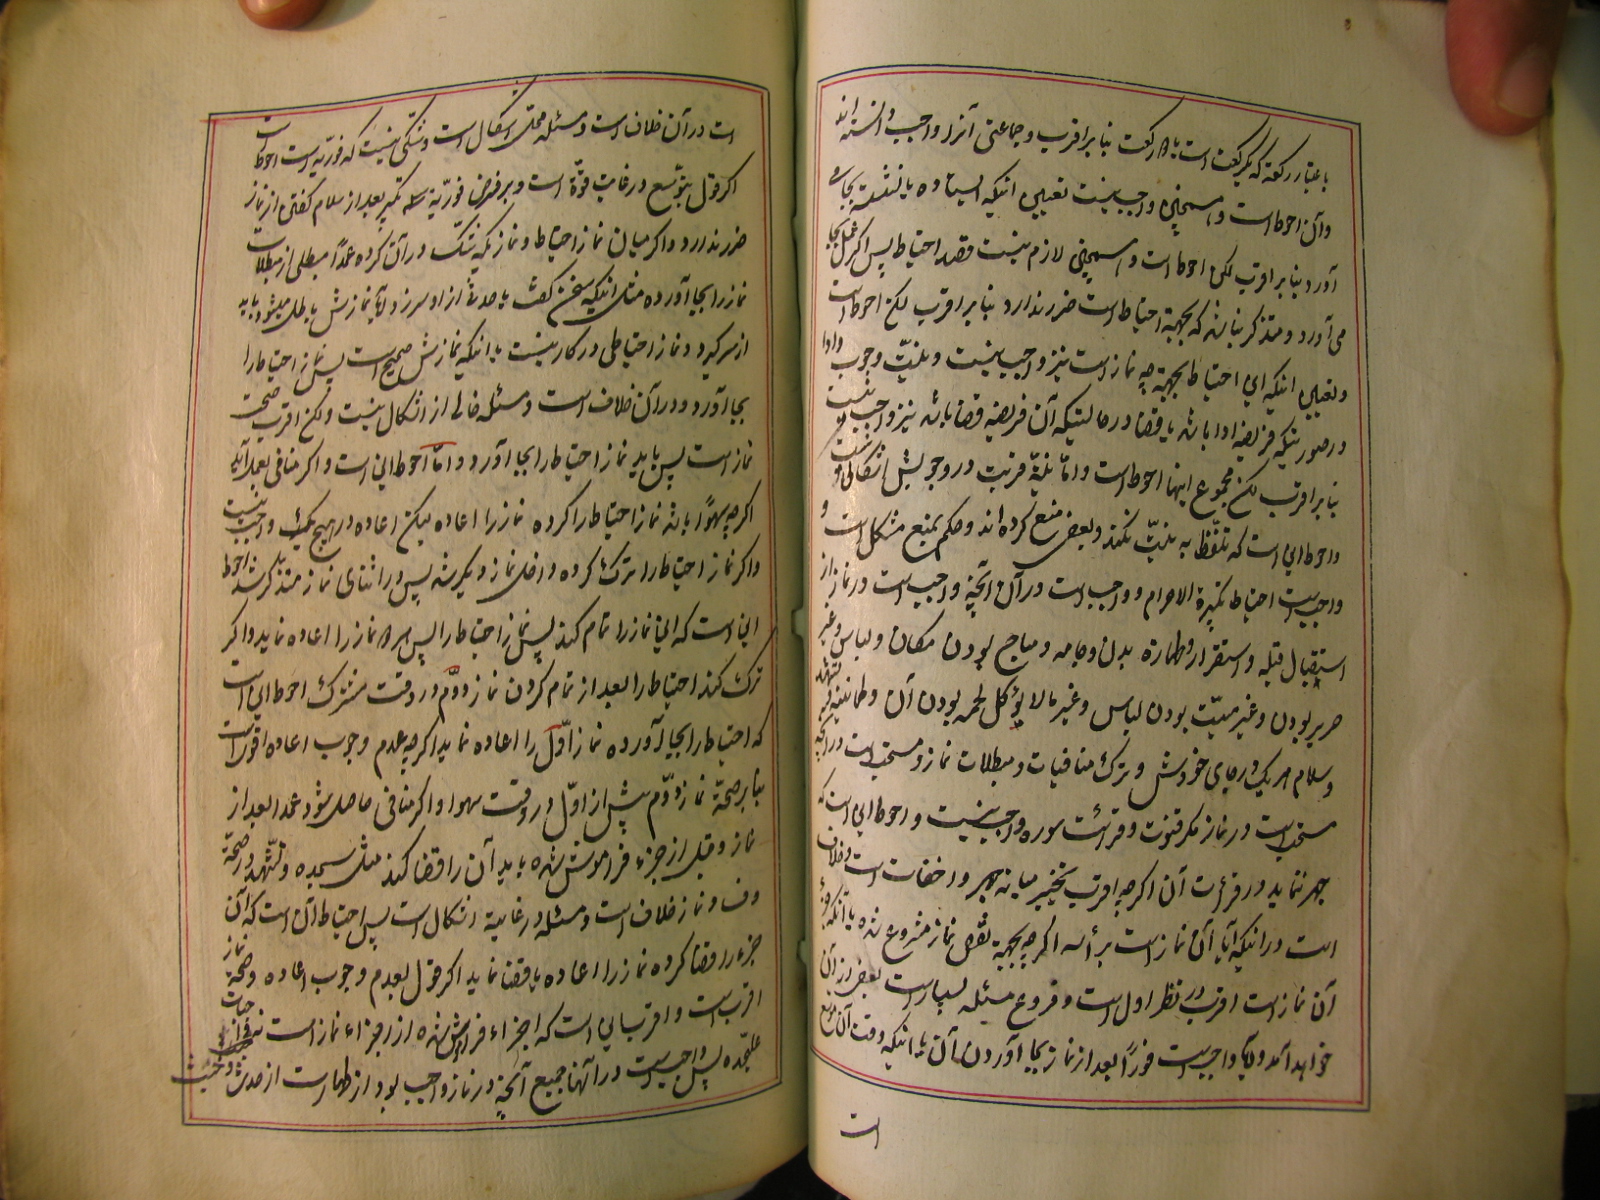 باعتبار رکعة که یکرکعت است یا دو رکعت بنا بر اقرب و جماعتی آنرا واجب دانسته اند
و آن احوط است و همچنین واجب نیست تعیین اینکه ایستاده یا نشسته بجا می
آورد بنا بر اقرب لکن احوط است و همچنین لازم نیست قصد احتیاط پس اکر عمل بجا
می آورد و متذکر نباشد که بجهة احتیاط است ضرر ندارد بنا بر اقرب لکن احوط است
و تعیین اینکه این احتیاط بجهة چه نماز است نیز واجب نیست و نه نیّت وجوب و ادا
در صورتیکه فریضه ادا باشد یا قضا در حالتیکه آن فریضه قضا باشد نیز واجب نیست
بنا بر اقرب لکن مجموع اینها احوط است و امّا نیّة قربت در وجوبش اشکالی نیست و
واحوط این است که تلفّظ به نیّت نکند و بعضی منع کرده اند و حکم بمنع مشکل است و
واجب است احتیاط تکبیرة الاحرام و واجب است در آن آنچه واجب است در نماز از
استقبال قبله و استقرار و طهارة بدن و جامه و مباح بودن مکان و لباس و غیر
حریر بودن و غیر میّت بودن لباس و غیر ما لا یؤکل لحمه بودن آن و طمانینه و تشهد
و سلام هر یک در جای خودش و ترک منافیات و مبطلات نماز و مستحب است در آن آنچه
مستحب است در نماز مکر قنوت و قرائت سوره واجب نیست و احوط این است که
جهر ننماید در قرأت آن اکر چه اقرب تخییر میانه جهر و اخفات است و خلاف
است در اینکه آیا آن نماز است برأسه اکر چه بجهة نقص نماز مشروع شده یا آنکه جزء
آن نماز است اقرب در نظر اول است و فروع مسئله بسیار است بعضی از آن
خواهد آمد و آیا واجب است فوراً بعد از نماز بجا آوردن آن یا اینکه وقت آن موسع
است
است در آن خلاف است و مسئله محل اشکال است و شکی نیست که فوریة است احوط
اکر قول بتوسّع در غایت قوّة است و بر فرض فوریّة سه تکبیر بعد از سلام کفتن از نماز
ضرر ندارد و اکر میان نماز احتیاط و نمازیکه شکّ در آن کرده عمداً مبطلی از مبطلات
نماز را بجا آورده مثل اینکه سخن کفت یا حدث از او سرزد آیا نمازش باطل میشود باید
از سر کیرد و نماز احتیاطی در کار نیست یا اینکه نمازش صحیح است پس نماز احتیاط را
بجا آورد و در آن خلاف است و مسئله خالی از اشکال نیست و لکن اقرب صحت
نماز است پس باید نماز احتیاط را بجا آورد و امّا احوط این است و اکر منافی بعد آید
اکر چه سهوًا باشد نماز احتیاط را کرده نماز را اعاده لیکن اعاده در هیچ یک واجب نیست
و اکر نماز احتیاط را ترک کرده و داخل نماز دیکر شد پس در اثنای نماز متذکر شد احوط
این است که این نماز را تمام کند پس نماز احتیاط را پس هر دو نماز را اعاده نماید و اکر
ترک کند احتیاط را بعد از تمام کردن نماز دوّم در وقت مشترک احوط این است
که احتیاط را بجا آورده نماز اوّل را اعاده نماید اکر چه عدم وجوب اعاده اقوی است
بنا بر صحة نماز دوّم پیش از اوّل در وقت سهوا و اکر منافی حاصل شود عمدا بعد از
نماز و قبل از جزء فراموش شده باید آن را قضا کند مثل سجده و تشهد و در صحّة
و ف و نماز خلاف است و مسئله در غایة اشکال است پس احتیاط آن است که آن
جزء را قضا کرده نماز را اعاده یا قضا نماید اکر قول بعدم وجوب اعاده و صحّة نماز
اقرب است و اقرب این است که اجزاء فراموش شده از اجزاء نماز است نه نماز
علیحده پس واجب است در آنها جمیع آنچه در نماز واجب بود از طهارت از حدث و خبث